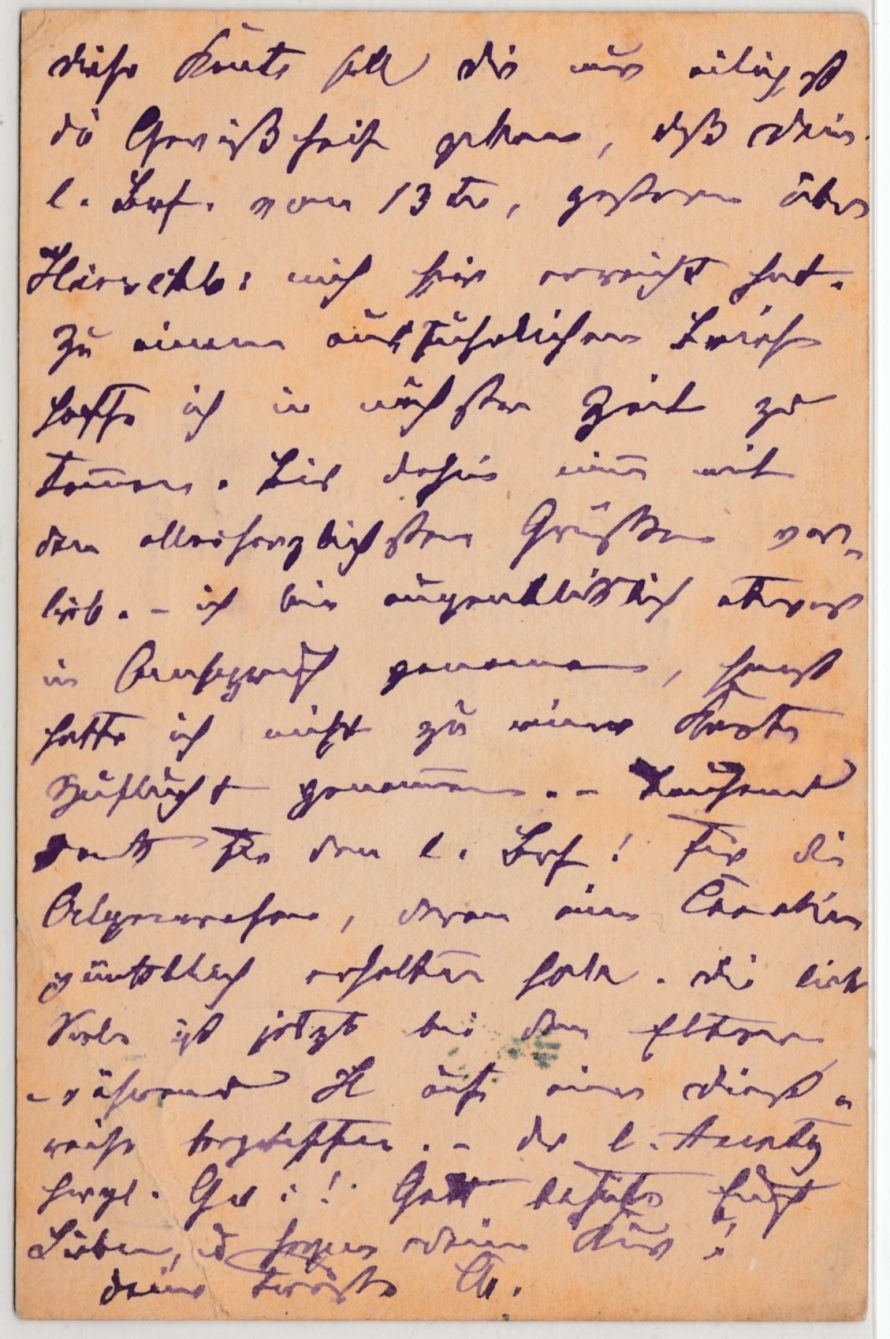 diese Karte soll dir nur eiligst
die Gewißheit geben, daß dein
l. Brf. vom 13ten, gestern über
Hirschb: mich hier erreicht hat.
Zu einem ausführlichen Briefe
hoffe ich in nächster Zeit zu
kom̄en. Bis dahin nim̄ mit
den allerherzlichsten Grüßen vor-
lieb. – ich bin augenblicklich etwas
in Anspruch genommen, sonst
hätte ich nicht zu einer Karte
Zuflucht genom̄en. – Tausend
Dank für den l. Brf! Für die
deren eine
pünktlich erhalten habe. die liebe
ist jetzt bei den Eltern
während H auf einer Dienst-
reise begriffen. – der l.
herzl. Gr:! Gott behüte Euch
Lieben, u deine Kur!
deine A.